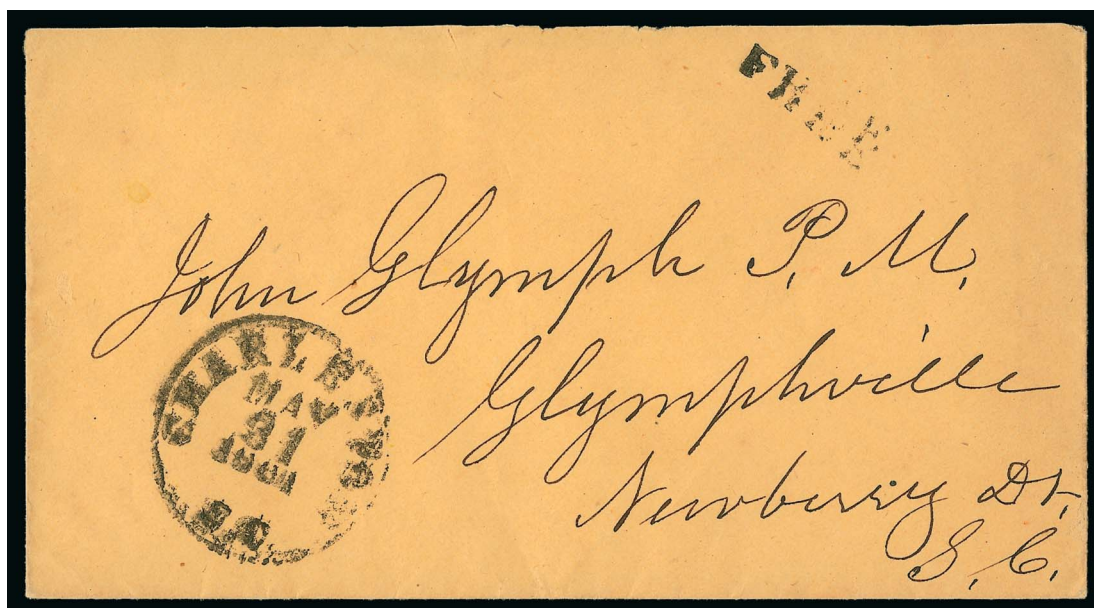 FREE
John Glymph P. M.
Glymphville
Newberry Dt.
S. C.
CHARLESTON
MAY
31
1861
S.C